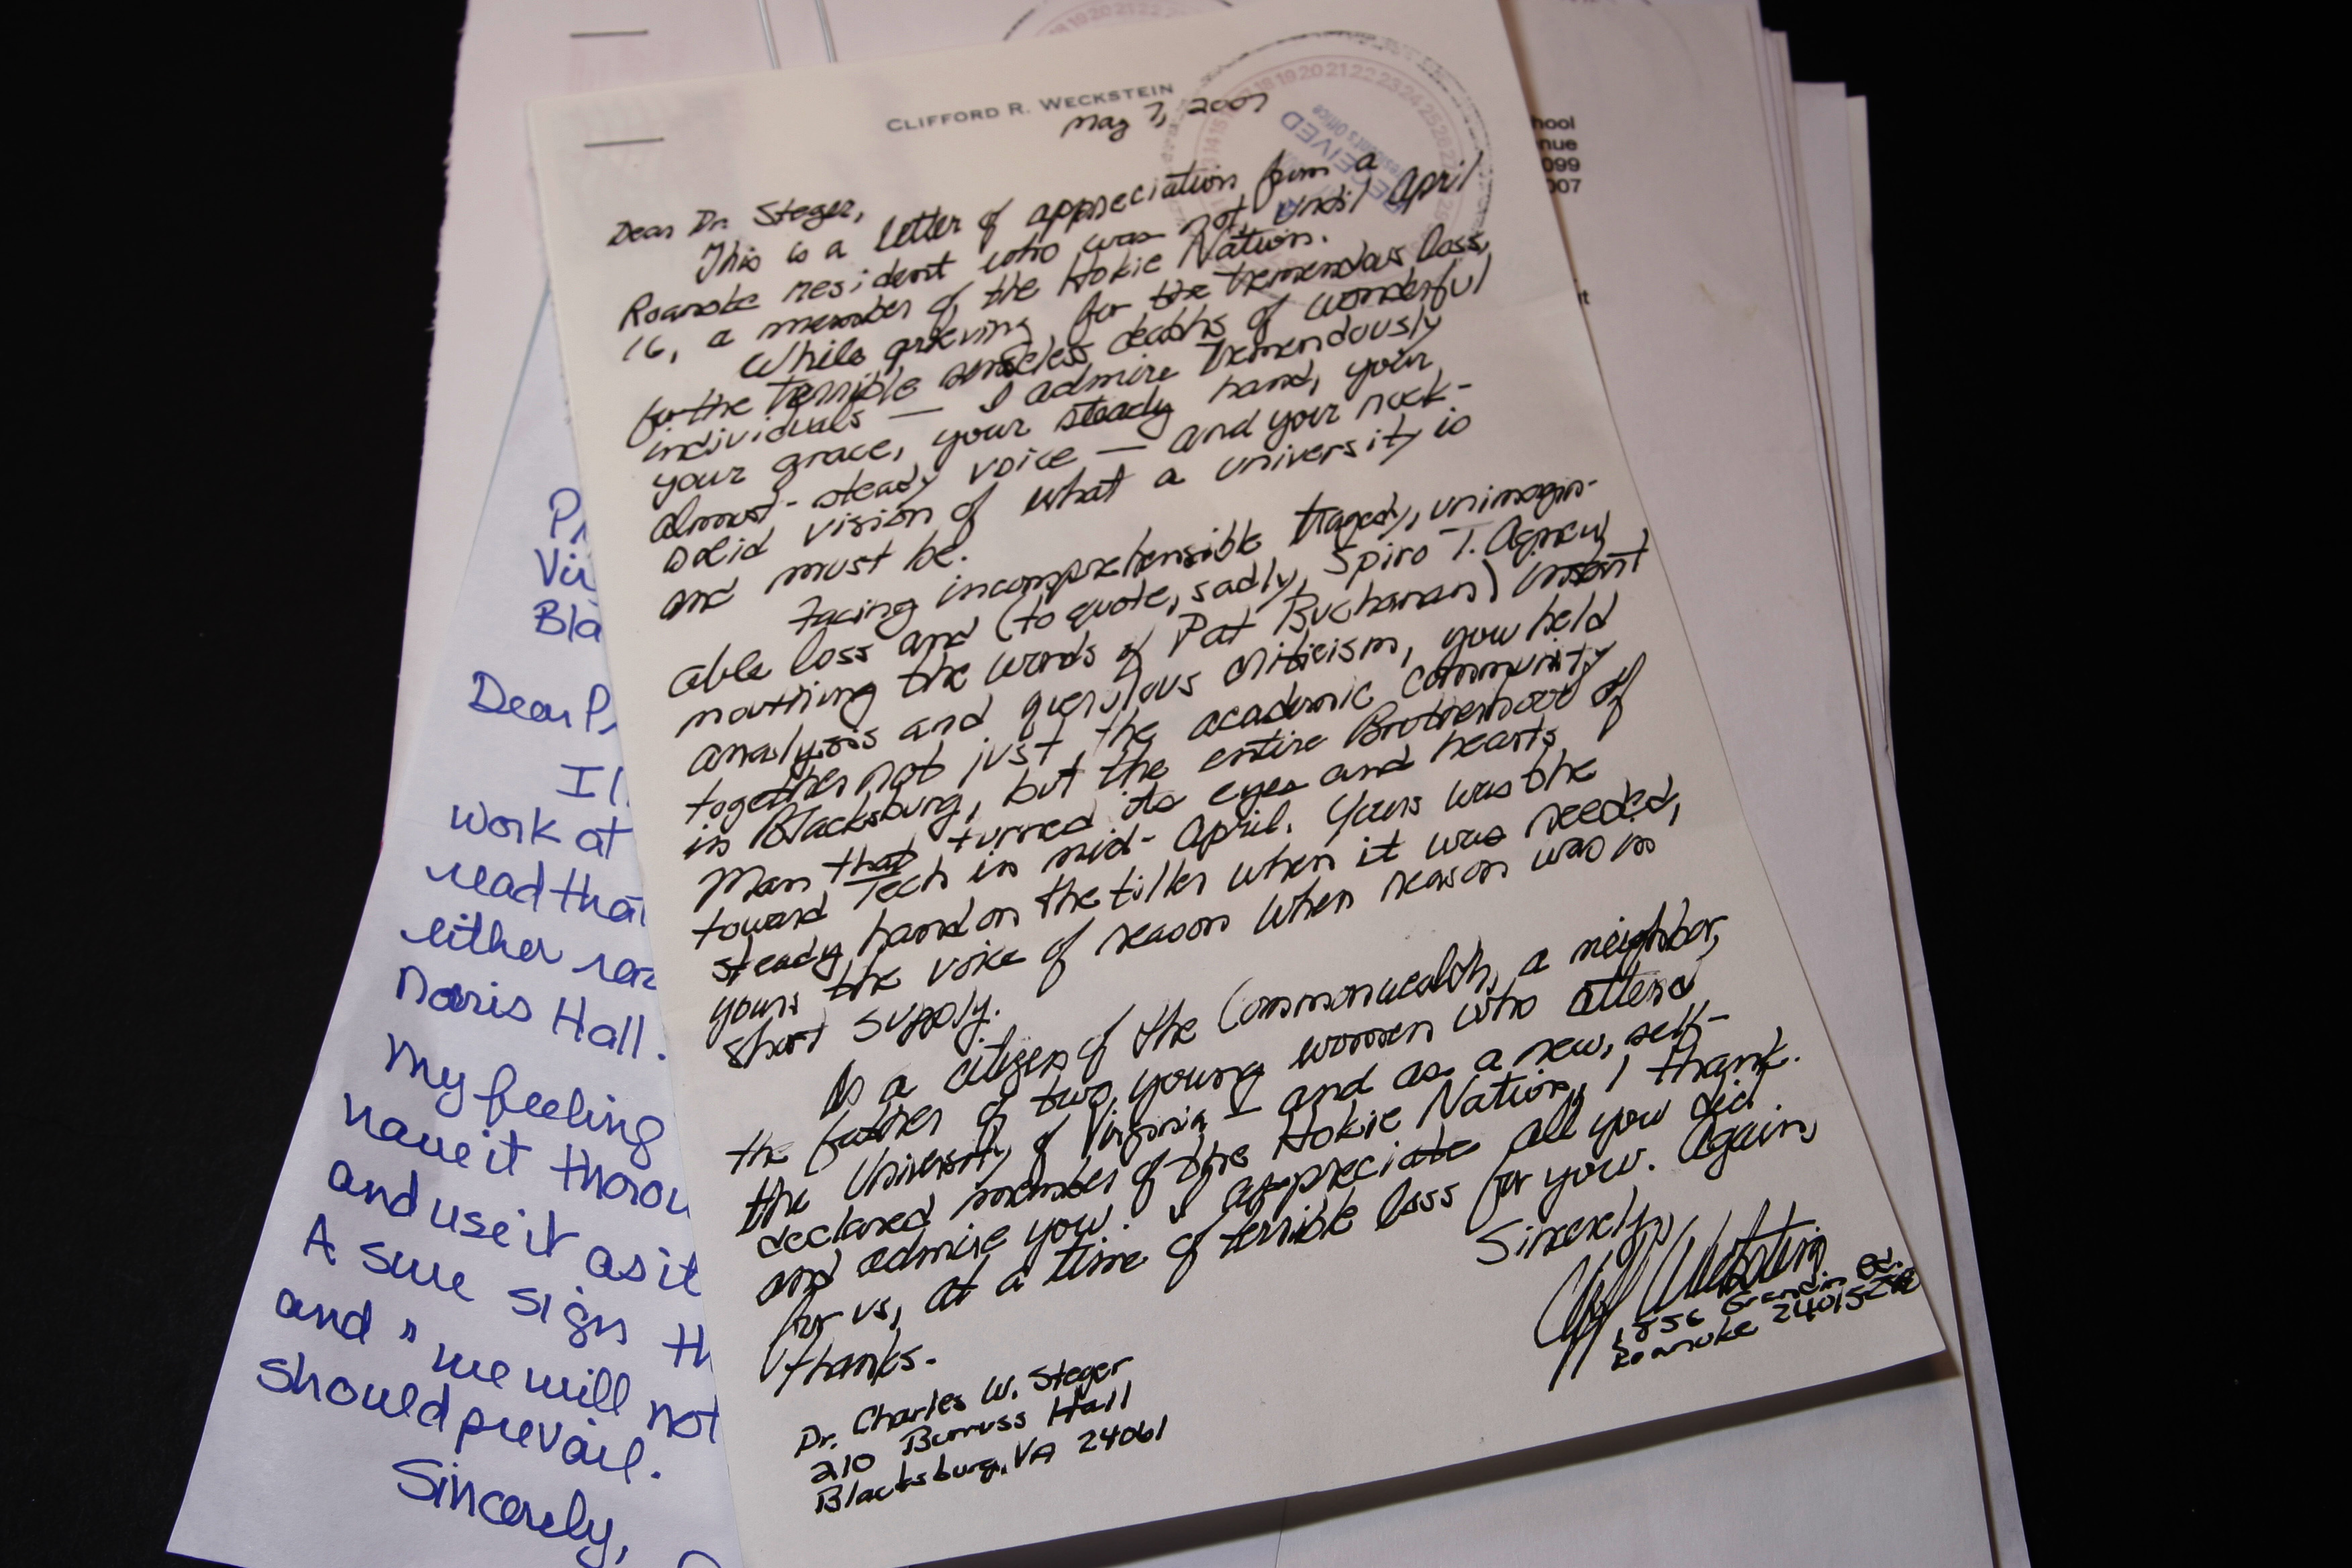 CLIFFORD R. WECKSTEIN
May 7, 2007
RECEIVED
President's Office
Dear Dr. Steger,
This is a letter of appreciation from a
Roanoke resident who was not, until April
16, a member of the Hokie Nation.
While grieving for the tremendous loss,
for the terrible senseless deaths of wonderful
individuals — I admire tremendously
your grace, your steady hand, your
almost-steady voice — and your rock-
solid vision of what a university is
and must be.
Facing incomprehensible tragedy, unimagin-
able loss and (to quote, sadly, Spiro T. Agnew
mouthing the words of Pat Buchanan) instant
analysis and querulous criticism, you held
together not just the academic community
in Blacksburg, but the entire Brotherhood of
Man that turned its eyes and hearts
toward Tech in mid-April. Yours was the
steady hand on the tiller when it was needed,
yours the voice of reason when reason was in
short supply.
As a citizen of the Commonwealth, a neighbor,
the father of two young women who attend
the University of Virginia — and as a new, self-
declared member of the Hokie Nation, I thank
and admire you. I appreciate all you did
for us, at a time of terrible loss for you. Again,
thanks.
Sincerely,
Cliff Weckstein
Grandin Rd.
Roanoke 24015
Dr. Charles W. Steger
210 Burruss Hall
Blacksburg, VA 24061
Dear P
work at
read that
either
Norris Hall.
My feeling
have it
and use it as it
A sure sign
and "we will not
should prevail.
Sincerely,
hool
nue
099
007